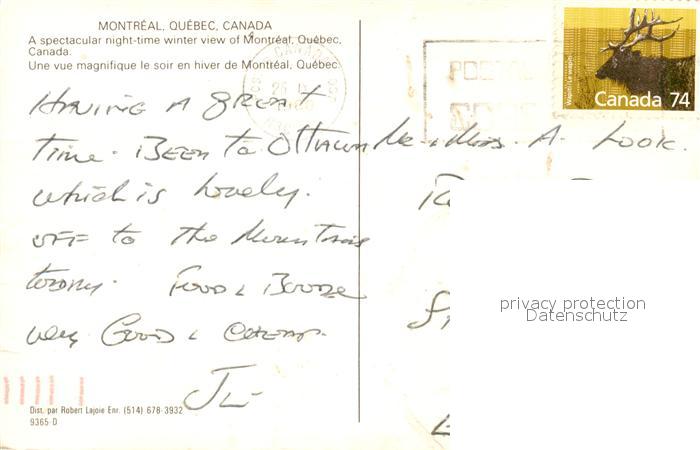 MONTRÉAL, QUÉBEC, CANADA
A spectacular night-time winter view of Montréal, Québec,
Canada.
Une vue magnifique le soir en hiver de Montréal, Québec.
CANADA
Wapiti/Le wapiti
Canada 74
HAVING A GREAT
TIME. BEEN to Ottawa
which is lovely.
OFF to the Mountains
today. FOOD & BOOZE
very GOOD & CHEAP.
Mr & Mrs. A. Look.
privacy protection
Datenschutz
Dist. par Robert Lajoie Enr. (514) 678-3932
9365-D